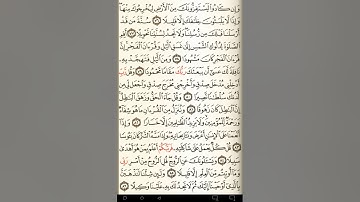 وَإِن كَادُوا لَيَسْتَفِزُّونَكَ مِنَ الْأَرْضِ لِيُخْرِجُوكَ مِنْهَا
وَإِذًا لَّا يَلْبَثُونَ خِلَافَكَ إِلَّا قَلِيلًا ٧٦ سُنَّةَ مَن قَدْ
أَرْسَلْنَا قَبْلَكَ مِن رُّسُلِنَا وَلَا تَجِدُ لِسُنَّتِنَا تَحْوِيلًا ٧٧ أَقِمِ
الصَّلَاةَ لِدُلُوكِ الشَّمْسِ إِلَىٰ غَسَقِ اللَّيْلِ وَقُرْآنَ الْفَجْرِ إِنَّ
قُرْآنَ الْفَجْرِ كَانَ مَشْهُودًا ٧٨ وَمِنَ اللَّيْلِ فَتَهَجَّدْ بِهِ
نَافِلَةً لَّكَ عَسَىٰ أَن يَبْعَثَكَ رَبُّكَ مَقَامًا مَّحْمُودًا ٧٩ وَقُل رَّبِّ
أَدْخِلْنِي مُدْخَلَ صِدْقٍ وَأَخْرِجْنِي مُخْرَجَ صِدْقٍ وَاجْعَل لِّي مِن
لَّدُنكَ سُلْطَانًا نَّصِيرًا ٨٠ وَقُلْ جَاءَ الْحَقُّ وَزَهَقَ الْبَاطِلُ
إِنَّ الْبَاطِلَ كَانَ زَهُوقًا ٨١ وَنُنَزِّلُ مِنَ الْقُرْآنِ مَا هُوَ شِفَاءٌ
وَرَحْمَةٌ لِّلْمُؤْمِنِينَ وَلَا يَزِيدُ الظَّالِمِينَ إِلَّا خَسَارًا ٨٢ وَإِذَا
أَنْعَمْنَا عَلَى الْإِنسَانِ أَعْرَضَ وَنَأَىٰ بِجَانِبِهِ وَإِذَا مَسَّهُ الشَّرُّ كَانَ يَئُوسًا
٨٣ قُلْ كُلٌّ يَعْمَلُ عَلَىٰ شَاكِلَتِهِ فَرَبُّكُمْ أَعْلَمُ بِمَنْ هُوَ أَهْدَىٰ
سَبِيلًا ٨٤ وَيَسْأَلُونَكَ عَنِ الرُّوحِ قُلِ الرُّوحُ مِنْ أَمْرِ رَبِّي
وَمَا أُوتِيتُم مِّنَ الْعِلْمِ إِلَّا قَلِيلًا ٨٥ وَلَئِن شِئْنَا لَنَذْهَبَنَّ
بِالَّذِي أَوْحَيْنَا إِلَيْكَ ثُمَّ لَا تَجِدُ لَكَ بِهِ عَلَيْنَا وَكِيلًا ٨٦